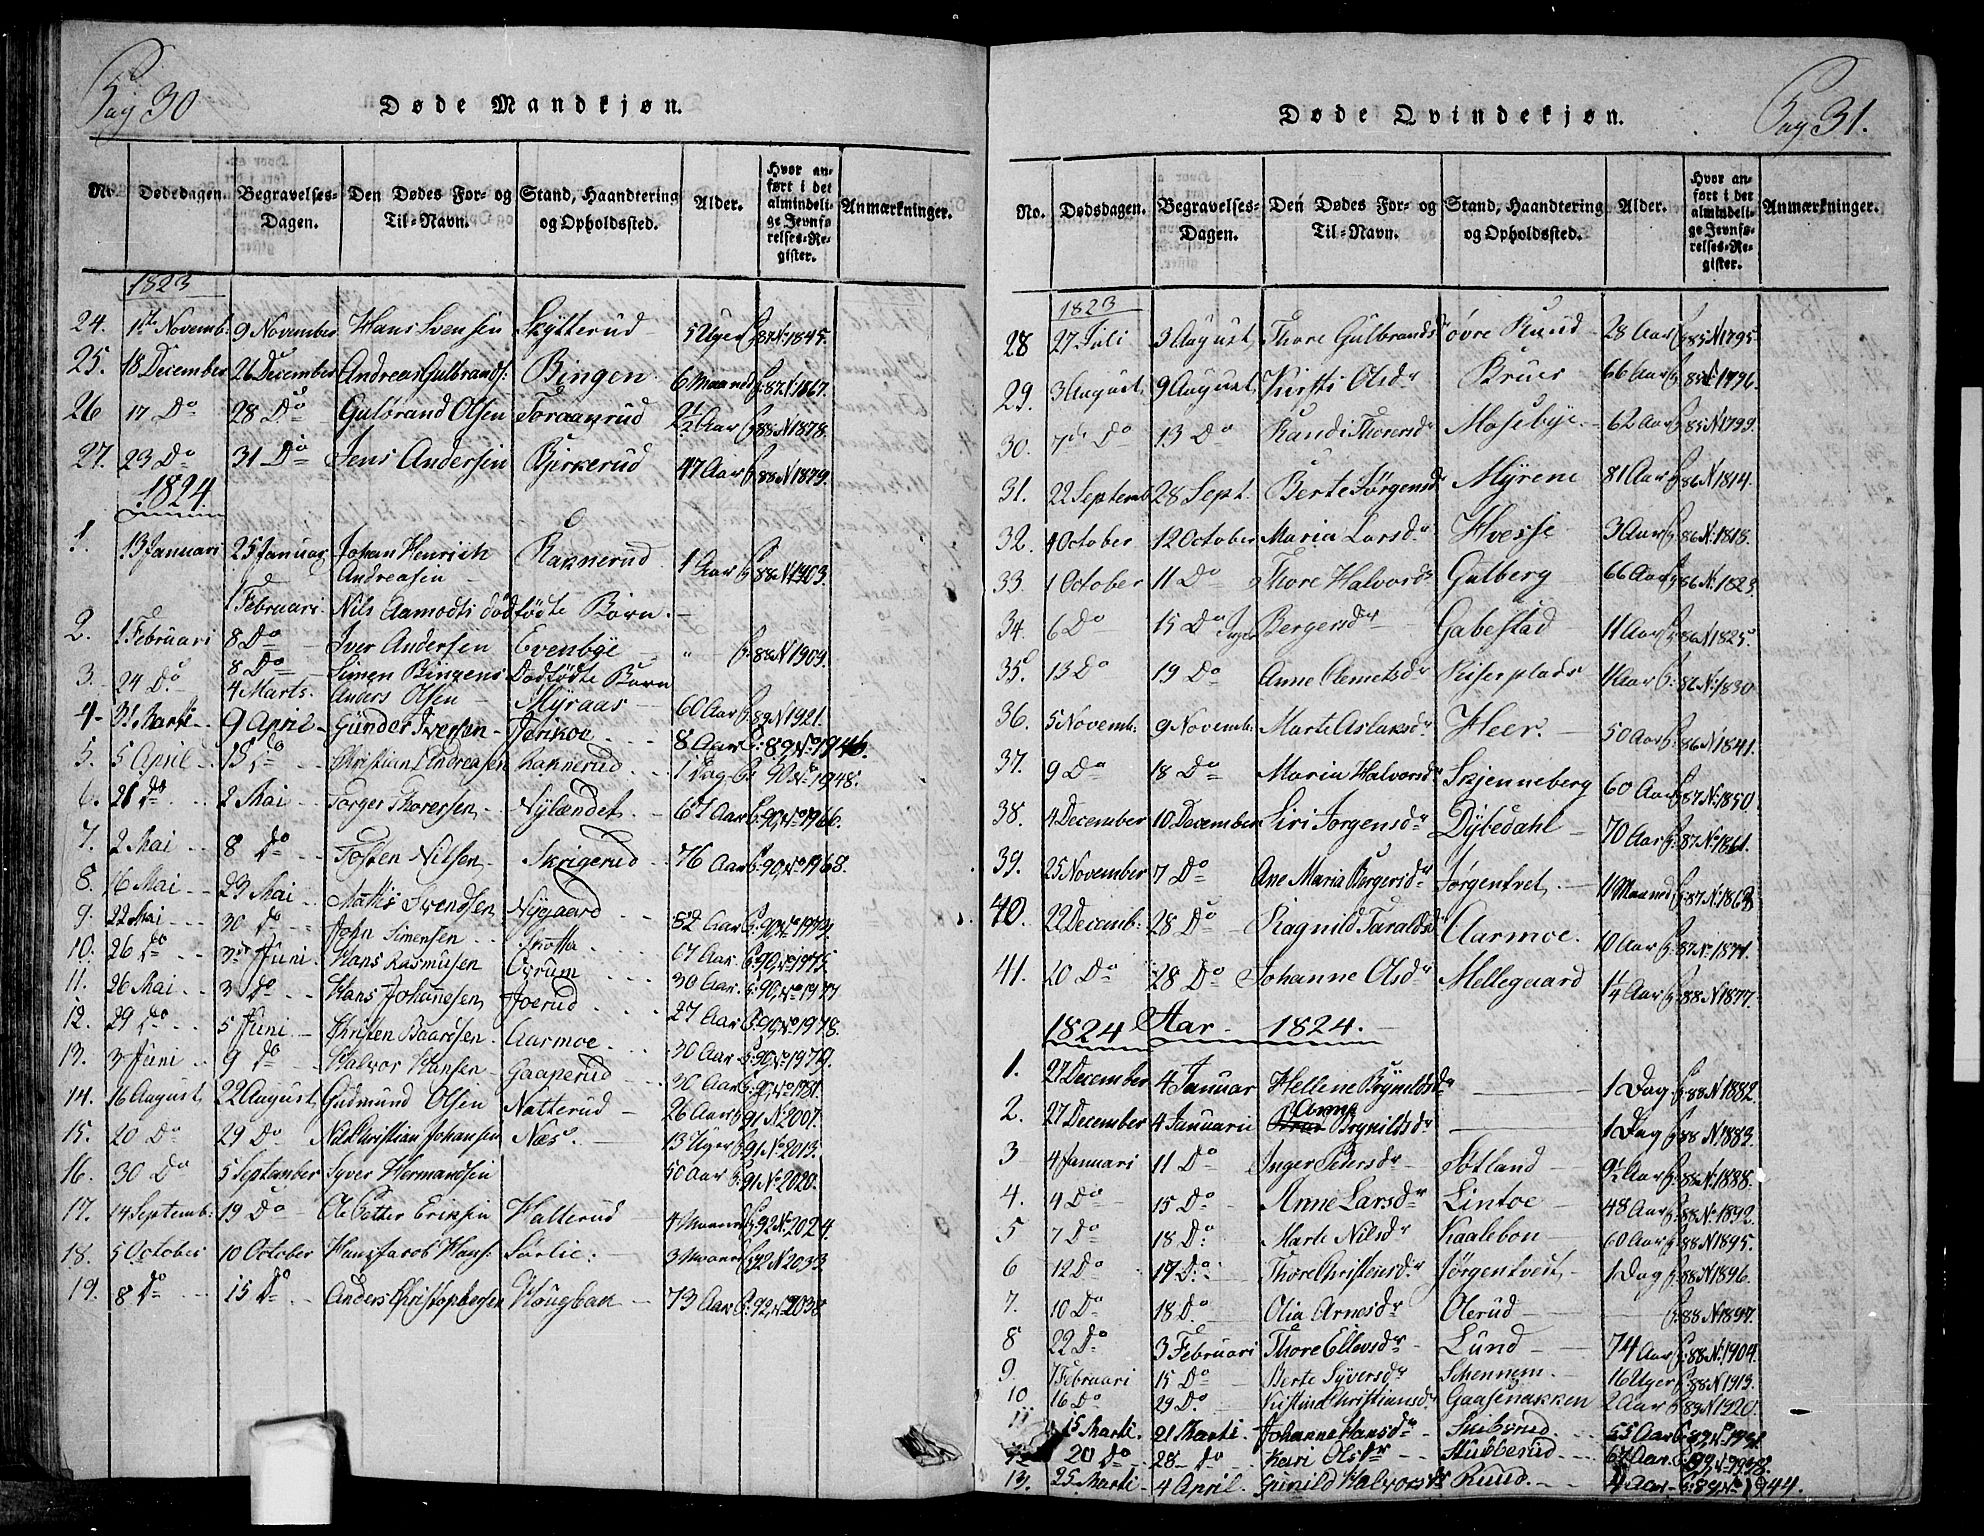 Pag 30
Døde Mandkjøn.
No. Dødedagen. Begravelses-Dagen. Den Dødes For- og Til-Navn. Stand, Haandtering og Opholdssted. Alder. Hvor anført i det almindelige Jevnførelses-Register. Anmærkninger.
1823
24. 1ste Novemb: 9 November Hans Svensen Skytterud 5 Uger P. 87 N: 1845.
25. 18 December 26 December Andreas Gulbrands: Bingen 6 Maaned P. 87 N 1867.
26 17 Do 28 Do Gulbrand Olsen Toraanrud 2 1/2 Aar P. 88 N 1878.
27. 23 Do 31 Do Jens Andersen Bjerkerud 47 Aar P. 88 N 1879.
1824
1. 13 Januari 25 Januar Johan Henrich Andreasen Raknerud 1 Aar P. 88 N 1903.
1 Februari Nils Aamodts dødfødte Børn.
2. 1 Februari 8 Do Iver Andersen Evenbye " P. 88 N 1909.
8 Do Simen Bingens Dødfødte Børn
3. 24 Do 4 Marts. Anders Olsen Myraas 60 Aar P. 89 N 1921.
4. 31 Marti 9 April Gunder Iversen Jerikoe 8 Aar P. 89 No 1946.
5. 5 April 13 Do Christian Andreasen Raknerud 1 Dag P. 90 No 1948.
6. 21 Do 2 Mai Torger Thoresen Nylændet 67 Aar P. 90 No 1966.
7. 2 Mai 8 Do Tosten Nilsen Skrigerud 76 Aar P. 90 No 1968.
8. 16 Mai 23 Mai Mathis Svendsen Nygaard 82 Aar P. 90 No
9. 22 Mai 30 Do John Simensen 67 Aar P. 90 No 1975.
10. 26 Do 3die Juni Hans Rasmusen 30 Aar P. 90 No 1977
11. 26 Mai 3 Do Hans Johannesen Joerud 27 Aar P. 90 No 1978.
12. 29 Do 5 Juni Christen Baardsen Aarmoe 30 Aar P. 90 No 1979.
13. 3 Juni 9 Do Halvor Hansen Gaaperud 30 Aar P. 90 No 1981.
14. 16 August 22 August Gudmund Olsen Natterud 26 Aar P. 91 N 2007.
15. 20 Do 29 Do Nils Christian Johansen Næs 13 Uger P. 91 No 2013.
16. 30 Do 5 September Syver Hermandsen 50 Aar P. 91 No 2020.
17. 14 Septemb: 19 Do Ole Petter Eriksen Hallerud 4 Maaned P. 92 No 2024.
18. 5 October 10 October Hans Jacob Hans: Sørlie. 3 Maaned P. 92 N 2033
19. 8 Do 15 Do Anders Christophersen Hougbak 73 Aar P. 92 N 2038
Pag 31.
Døde Qvindekjøn.
No. Dødsdagen. Begravelses-Dagen. Den Dødes For- og Til-Navn. Stand, Haandtering og Opholdssted. Alder. Hvor anført i det almindelige Jevnførelses-Register. Anmærkninger.
1823
28 27 Juli 3 August Thore Gulbrandsdr øvre Ruud 28 Aar P. 85 N 1795.
29. 3 August 9 August Kirsti Olsdr Brues 66 Aar P. 85 N 1796.
30. 7de Do 13 Do Randi Thoresdr Mosebye 62 Aar P. 85 N 1799.
31. 22 Septemb 28 Sept. Berte Jørgensdr Myrene 81 Aar P. 86 N 1814.
32. 4 October 12 October Maria Larsdr Hvesse 3 Aar P. 86 N: 1815.
33. 1 October 11 Do Thore Halvorsdr Gulberg 66 Aar P. 86 N: 1823.
34. 6 Do 15 Do Inger Bergersdr Gabestad 11 Aar P. 86 N 1825.
35. 13 Do 19 Do Anne Clemetsdr Kiserplads 1 Aar P. 86 N: 1830
36. 5 Novemb: 9 Novemb: Marte Aslaksdr Heer. 50 Aar P. 86 N: 1841.
37. 9 Do 18 Do Maria Halvorsdr Skjenneberg 60 Aar P. 87 N: 1850.
38. 4 December 10 December Siri Jørgensdr Dybedahl 70 Aar P. 87 N: 1861.
39. 25 November 7 Do Ane Maria Bergersdr Jørgentvet 11 Maaned P. 87 N: 1863
40. 22 Decemb: 28 Do Ragnild Taraldsdr Aarmoe. 10 Aar P. 87 N: 1871.
41. 20 Do 28 Do Johanne Olsdr Mellegaard 1 1/4 Aar P. 88 N 1877.
1824 Aar 1824.
1. 27 December 4 Januar Hellene Brynildsdr 1 Dag P. 88 N 1882.
2. 27 December 4 Januarii Anne Brynildsdr 1 Dag P. 88 N 1883.
3 4 Januari 11 Do Inger Pedersdr Søtland 9 1/2 Aar P. 88 N: 1888.
4. 4 Do 15 Do Anne Larsdr Lintoe 48 Aar P. 88 No 1892.
5 7 Do 18 Do Marte Nilsdr Kaalebon 60 Aar P. 88 N 1895.
6 12 Do 17 Do Thore Christensdr Jørgentveit 1 Dag P. 88 N 1896.
7. 10 Do 18 Do Olia Arnesdr Olerud P. 88 N 1897.
8 22 Do 3 Februari Thore Ellevsdr Lund 74 Aar P. 88 N: 1904.
9. 7 Februari 15 Do Berte Syversdr Schennem. 16 Uger P. 88 N 1913.
10 16 Do 29 Do Kistine Christiansdr Gaasenakken 2 Aar P. 89 N 1920.
11 15 Marti. 21 Marti. Johanne Hansdr Skibsrud. 55 Aar P. 89 No
20 Do 28 Do Kari Olsdr Stubberud 67 Aar P. 89 No 1938.
13. 25 Marti 4 April. Gunild Halvorsdr Ruud. 4 Aar P. 89 No 1944.